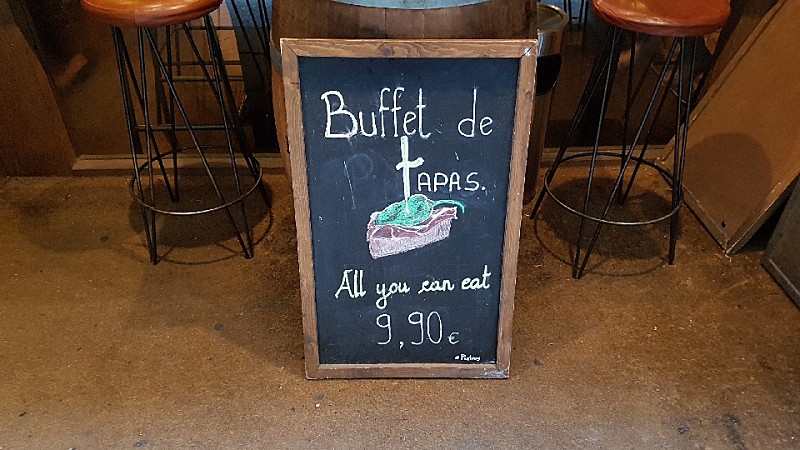 Buffet de
tAPAS.
All you can eat
9,90€